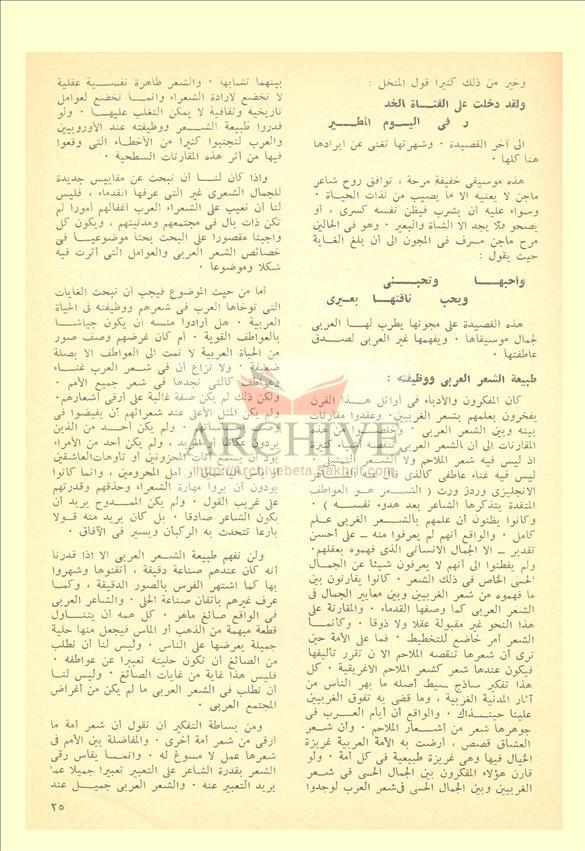 وخير من ذلك كثيرا قول المنخل :
ولقد دخلت على الفتـاة الخد
ر فى اليـوم المطـير
الى آخر القصيدة ٠ وشهرتها تغنى عن ايرادها
هنا كلها ٠
هذه موسيقى خفيفة مرحة ، توافق روح شاعر
ماجن لا يعنيه الا ما يصيب من لذات الحياة ٠
وسواء عليه أن يشرب فيظن نفسه كسرى ، أو
يصحو فلا يجد الا الشاة والبعير ٠ وهو فى الحالين
مرح ماجن مسرف فى المجون الى أن بلغ الغاية
حيث يقول :
وأحبهـا وتحبـنى
ويحب ناقتهـا بعيرى
هذه القصيدة على مجونها يطرب لهـا العربى
لجمال موسيقاها ٠ ويفهمها غير العربى لصـدق
عاطفتها ٠
طبيعة الشعر العربى ووظيفته :
كان المفكرون والأدباء فى أوائل هـذا القرن
يفخرون بعلمهم بشعر الغربيين ٠ وعقدوا مقارنات
بينه وبين الشعر العربى ٠ وخلصـوا من هذه
المقارنات الى أن الشعر العربى تنقصه أشياء كثيرة
اذ ليس فيه شعر الملاحم ولا الشـعر التمثيلى ٠
ليس فيه غناء عاطفى كالذى قال عنه الشـاعر
الانجليزى وردز ورث ( الشـعر هـو العواطف
المتقدة يتذكرها الشاعر بعد هدوء نفسـه ) ٠
وكانوا يظنون أن علمهم بالشـعر الغربى علم
كامل ٠ والواقع أنهم لم يعرفوا منه ــ على أحسن
تقدير ــ الا الجمال الانسانى الذى فهموه بعقلهم ٠
ولم يفطنوا الى أنهم لا يعرفون شيئا عن الجمـال
الحسى الخاص فى ذلك الشعر ٠ كانوا يقارنون بين
ما فهموه من شعر الغربيين وبين معايير الجمال فى
الشعر العربى كما وصفها القدماء ٠ والمقارنة على
هذا النحو غير مقبولة عقلا ولا ذوقا ٠ وكأنمـا
الشعر أمر خاضع للتخطيط ٠ فما على الأمة حين
ترى أن شعرها تنقصه الملاحم الا ن تقرر تأليفها
فيكون عندها شعر كشعر الملاحم الاغريقية ٠ كل
هذا تفكير ساذج سيط أصله ما بهر الناس من
آثار المدنية الغربية ، وما قضى به تفوق الغربيين
علينا حينـذاك ٠ والواقع أن أيام العـرب فى
جوهرها شعر من أشـعار الملاحم ٠ وأن شـعر
العشاق قصص ، أرضت به الأمة العربية غريزة
الخيال فيها وهى غريزة طبيعية فى كل أمة ٠ ولو
قارن هؤلاء المفكرون بين الجمال الحسى فى شـعر
الغربيين وبين الجمال الحسى فى شعر العرب لوجدوا
بينهما تشابها ٠ والشعر ظاهرة نفسـية عقلية
لا تخضع لارادة الشعراء وانمـا تخضع لعوامل
تاريخية وثقافية لا يمكن التغلب عليهـا ٠ ولو
قدروا طبيعة الشـعر ووظيفته عند الأوروبيين
والعرب لتجنبوا كثيرا من الأخطاء التى وقعوا
فيها من أثر هذه المقارنات السطحية ٠
واذا كان لنـا أن نبحث عن مقاييس جديدة
للجمال الشعرى غير التى عرفها القدماء ، فليس
لنا أن نعيب على الشعراء العرب اغفالهم أمورا لم
تكن ذات بال فى مجتمعهم ومدنيتهم ، ويكون كل
واجبنا مقصورا على البحث بحثا موضوعيـا فى
خصائص الشعر العربى والعوامل التى أثرت فيه
شكلا وموضوعا ٠
أما من حيث الموضوع فيجب أن نبحث الغايات
التى توخاها العرب فى شعرهم ووظيفته فى الحياة
العربية ٠ هل أرادوا منـه أن يكون جياشـا
بالعواطف القوية ٠ أم كان غرضهم وصف صور
من الحياة العربية لا تمت الى العواطف الا بصلة
ضعيفة ٠ ولا نزاع أن فى شـعر العرب غنـاء
وعواطف كالتى نجدها فى شعر جميع الأمم ٠
ولكن ذلك لم يكن صفة غالبة على أرقى أشعارهم ٠
ولم يكن المثل الأعلى عند شعرائهم أن يفيضوا فى
ولم يكن أحـد من الذين
يردون عكاظا أو المربد ، ولم يكن أحد من الأمراء
يود أن يسمع أنات المحزونين أو تأوهات العاشقين
أو يأس اليائسين أو أمل المحرومين ، وانما كانوا
يودون أن يروا مهارة الشعراء وحذقهم وقدرتهم
على غريب القول ٠ ولم يكن الممـدوح يريد أن
يكون الشاعر صادقا ٠ بل كان يريد منه قـولا
بارعا تتحدث به الركبان ويسير فى الآفاق ٠
ولن نفهم طبيعة الشـعر العربى الا اذا قدرنا
أنه كان عندهم صناعة دقيقة ، أتقنوها وشهروا
بها كما اشتهر الفرس بالصور الدقيقة ، وكمـا
عرف غيرهم باتقان صناعة الحلى ٠ والشاعر العربى
فى الواقع صائغ ماهر ٠ كل همه أن يتنـاول
قطعة مبهمة من الذهب أو الماس فيجعل منها حلية
جميلة يعرضها على الناس ٠ وليس لنا أن نطلب
من الصائغ أن تكون حليته تعبيرا عن عواطفه ٠
فليس هذا غاية من غايات الصائغ ٠ وليس لنـا
أن نطلب فى الشعر العربى ما لم يكن من أغراض
المجتمع العربى ٠
ومن بساطة التفكير أن نقول أن شعر أمة ما
أرقى من شعر أمة أخرى ٠ والمفاضلة بين الأمم فى
شعرها عمل لا مسوغ له ٠ وانمـا يقاس رقى
الشعر بقدرة الشاعر على التعبير تعبيرا جميلا عما
يريد التعبير عنه ٠ والشعر العربى جميـل عند
٢٥
ARCHIVE
http://Archivebeta.Sakhrit.com